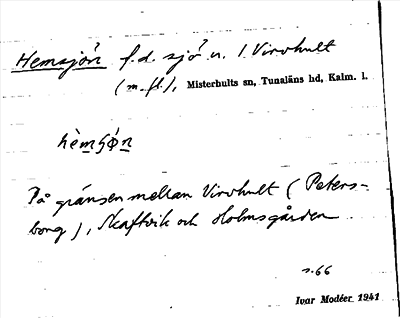 Hemsjön f.d. sjö u. 1 Virvhult
(m.fl.), Misterhults sn, Tunaläns hd, Kalm. l.
hèmʃǿn
På gränsen mellan Virvhult (Peters-
borg), Skaftvik och Holmsgården
s. 66
Ivar Modéer 1941